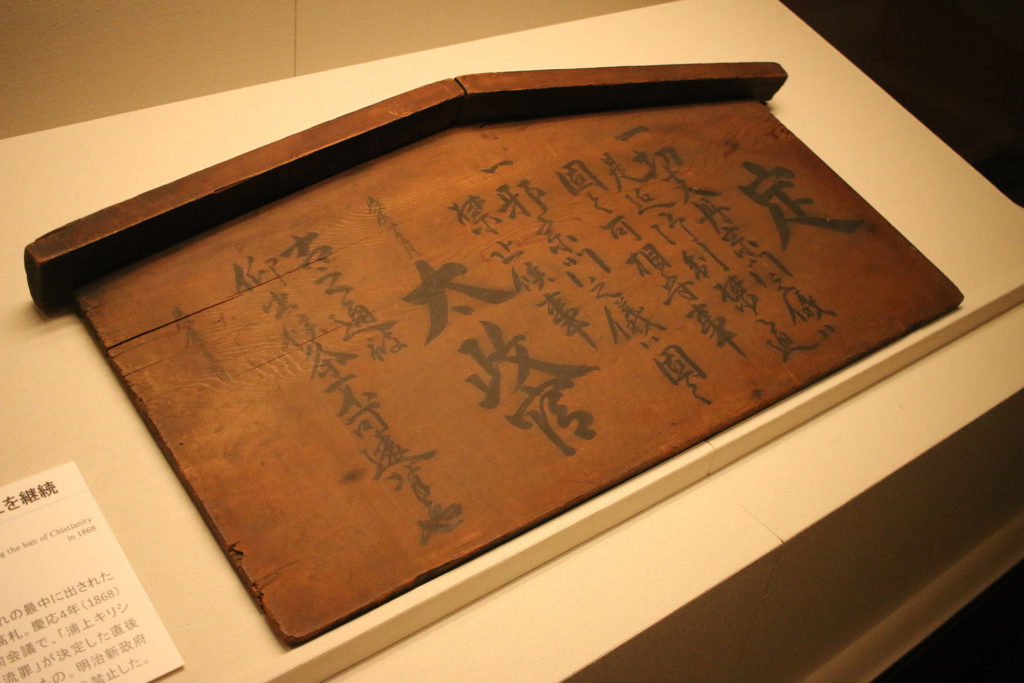 定
一 切支丹宗門之儀ハ
是迄御制禁之通
固く可相守事
一 邪宗門之儀ハ固く
禁止候事
太政官
右之通被
仰出候条可遵守也
を継続
the ban of Chistianity
in 1868
の最中に出された
高札。慶応4年(1868)
前会議で、「浦上キリシ
流罪」が決定した直後
もの。明治新政府
禁止した。